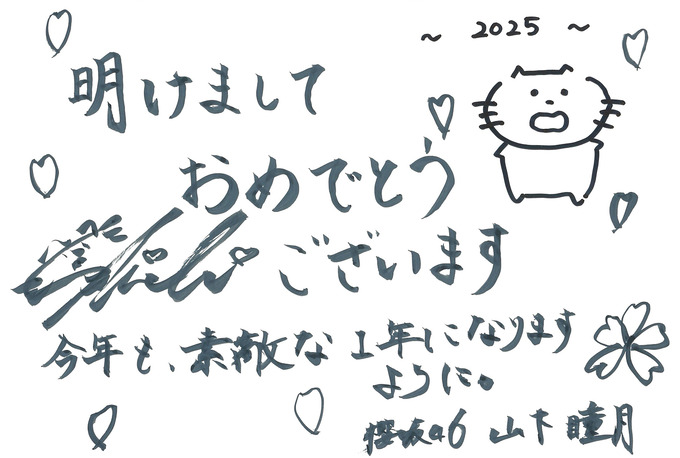 ~ 2025 ~
明けまして
おめでとう
ございます
今年も、素敵な1年になります
ように。
櫻坂46 山下瞳月